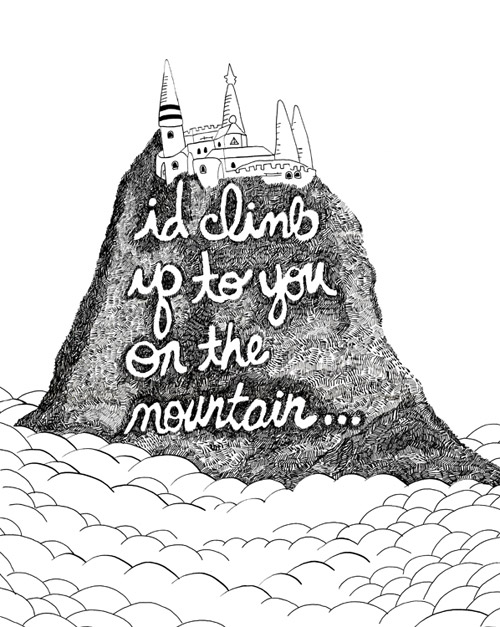 id climb
up to you
on the
mountain...